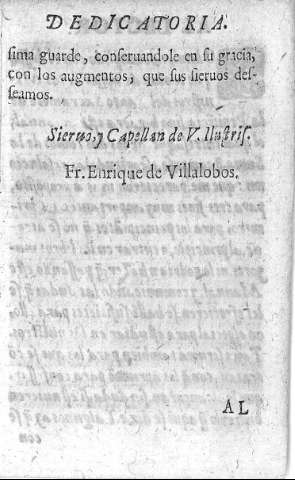 DEDICATORIA.
sima guarde, conseruandole en su gracia,
con los augmentos, que sus sieruos des-
seamos.
Sieruo, y Capellan de V. Illustris.
Fr. Enrique de Villalobos.
AL